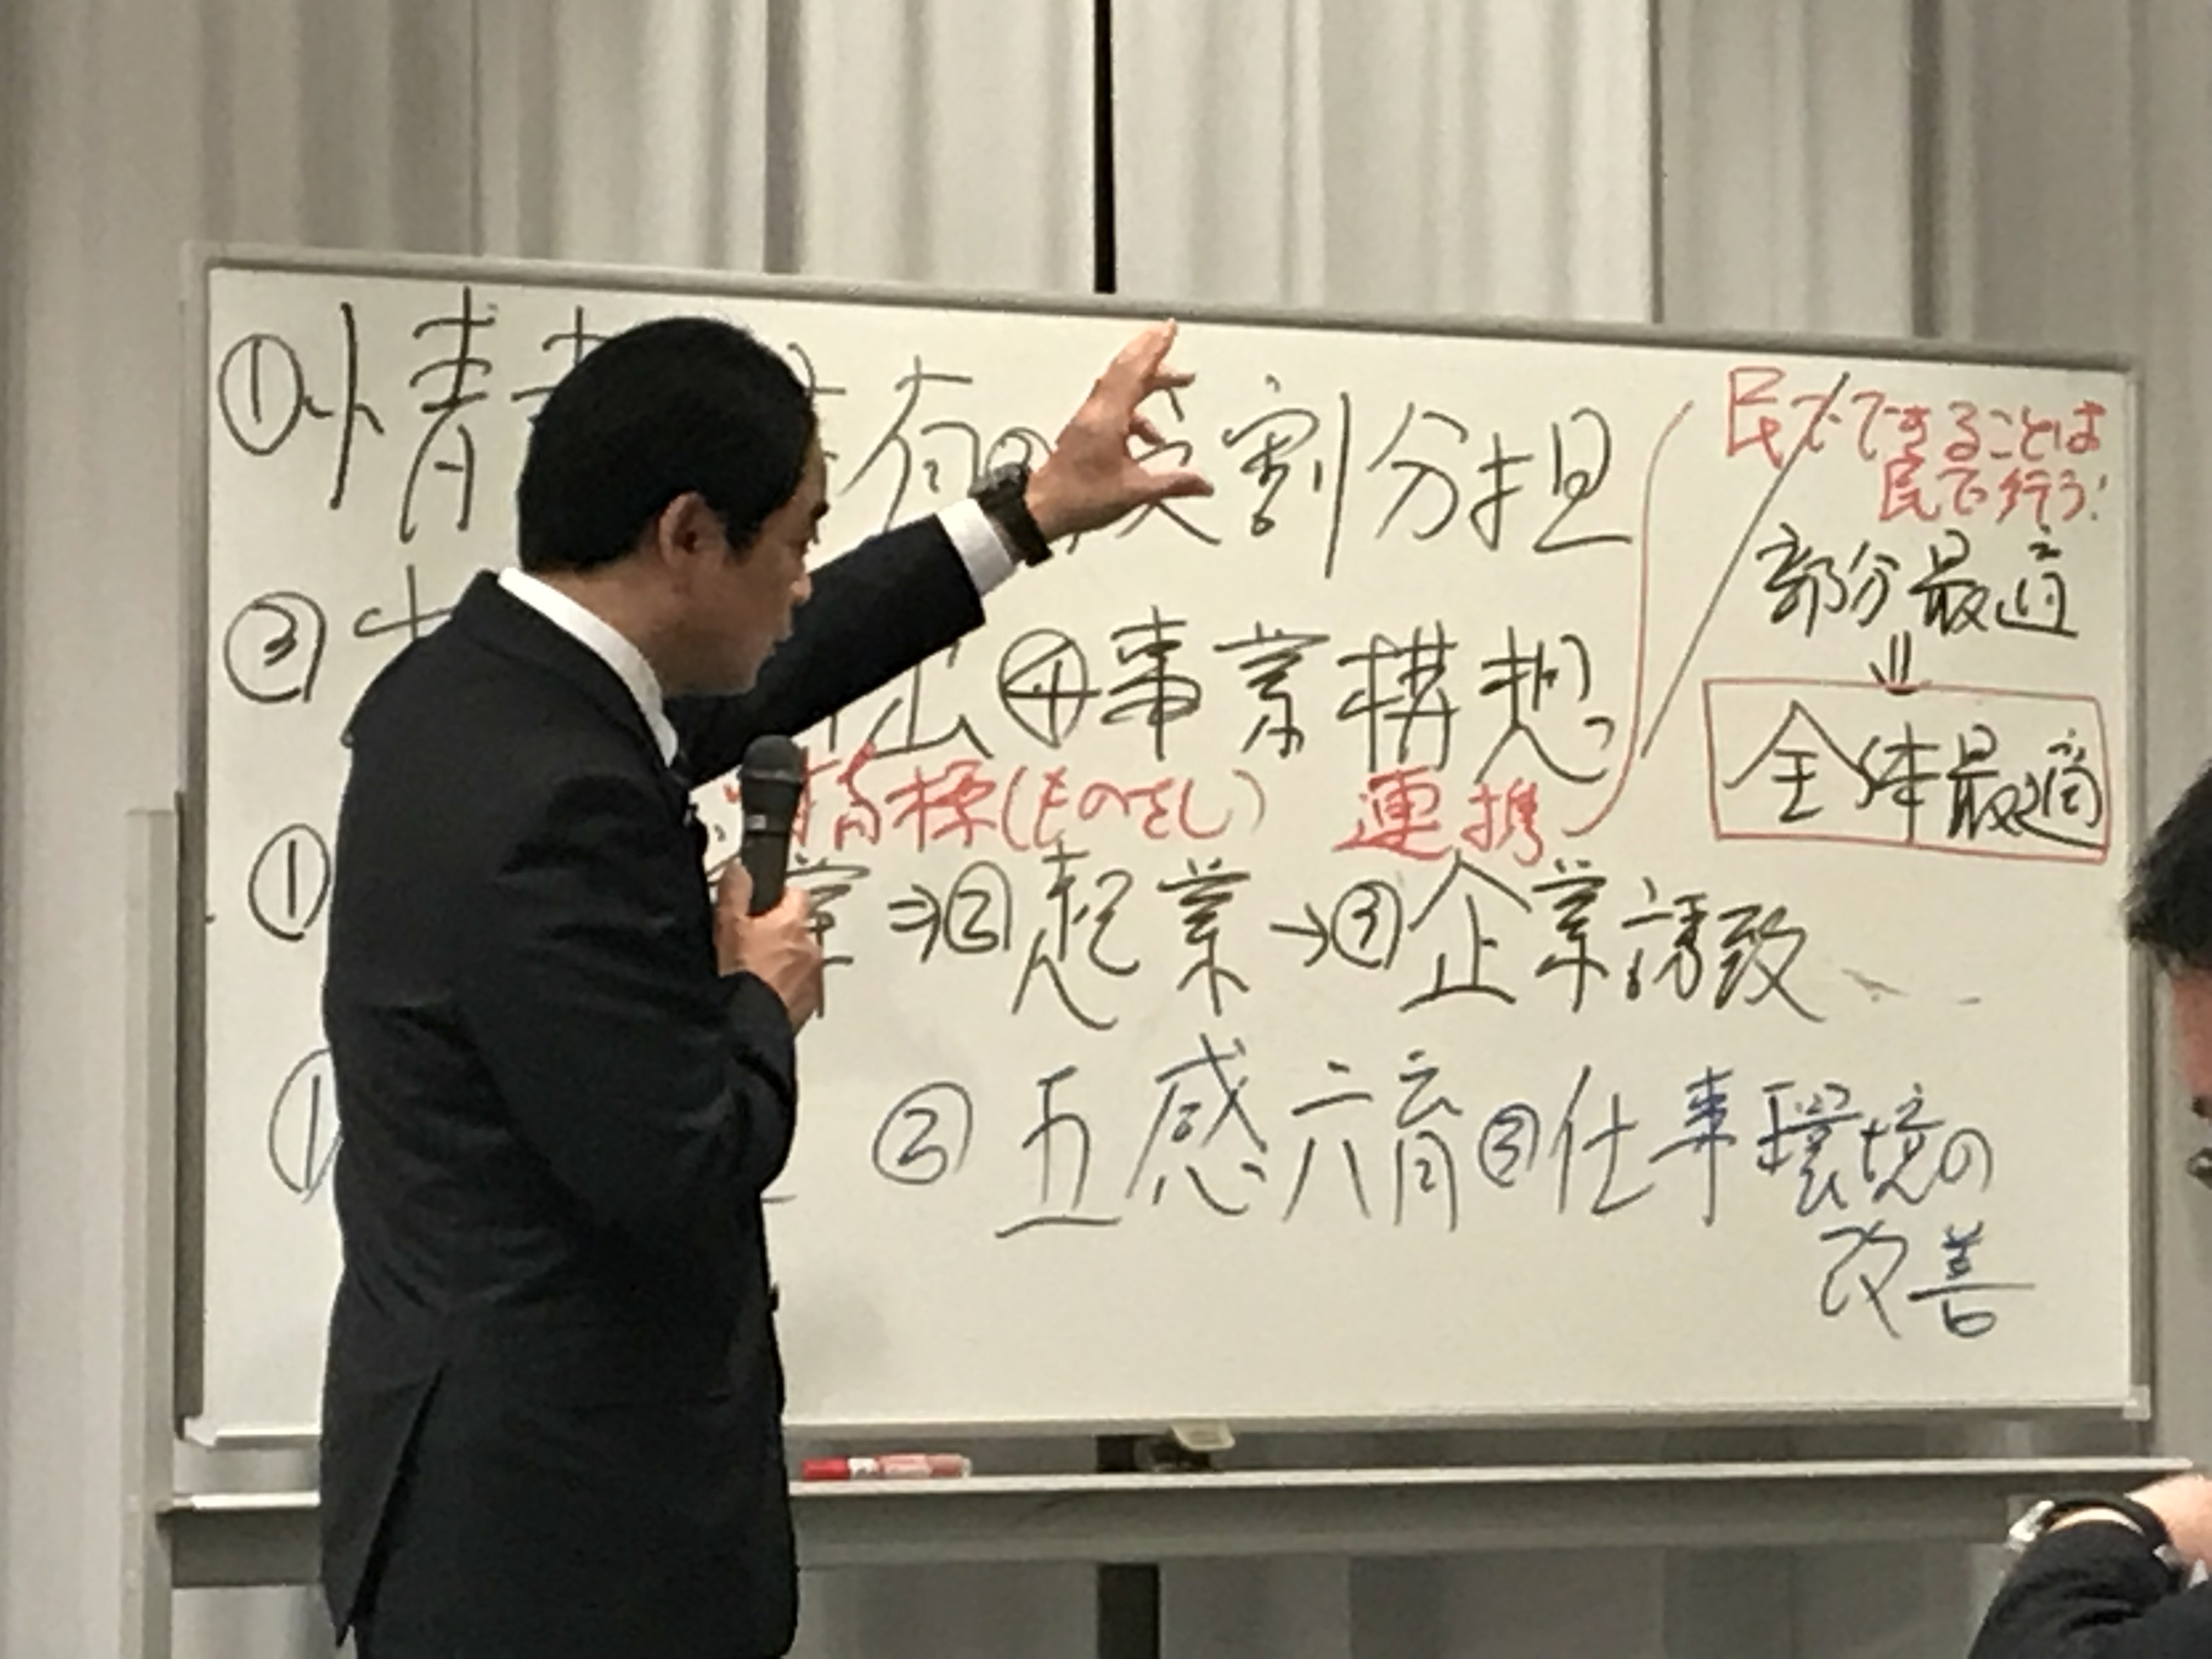 ①情 有②役割分担
③ 出④事業構想
指標(ものさし) 連携
① 業⇒②起業→③企業誘致
① ②五感六育③仕事環境の
改善
民でできることは
民で行う!
部分最適
⇓
全体最適